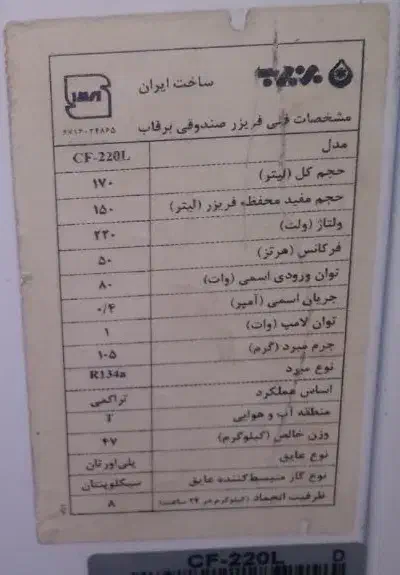 برفاب
ساخت ایران
۶۷۱۳۰۲۴۸۶۵
مشخصات فنی فریزر صندوقی برفاب
مدل CF-220L
حجم کل (لیتر) ۱۷۰
حجم مفید محفظه فریزر (لیتر) ۱۵۰
ولتاژ (ولت) ۲۲۰
فرکانس (هرتز) ۵۰
توان ورودی اسمی (وات) ۸۰
جریان اسمی (آمپر) ۰/۴
توان لامپ (وات) ۱
جرم مبرد (گرم) ۱۰۵
نوع مبرد R134a
اساس عملکرد تراکمی
منطقه آب و هوایی T
وزن خالص (کیلوگرم) ۴۷
نوع عایق پلی‌اورتان
نوع گاز منبسط‌کننده عایق سیکلوپنتان
ظرفیت انجماد (کیلوگرم در ۲۴ ساعت) ۸
CF-220L D